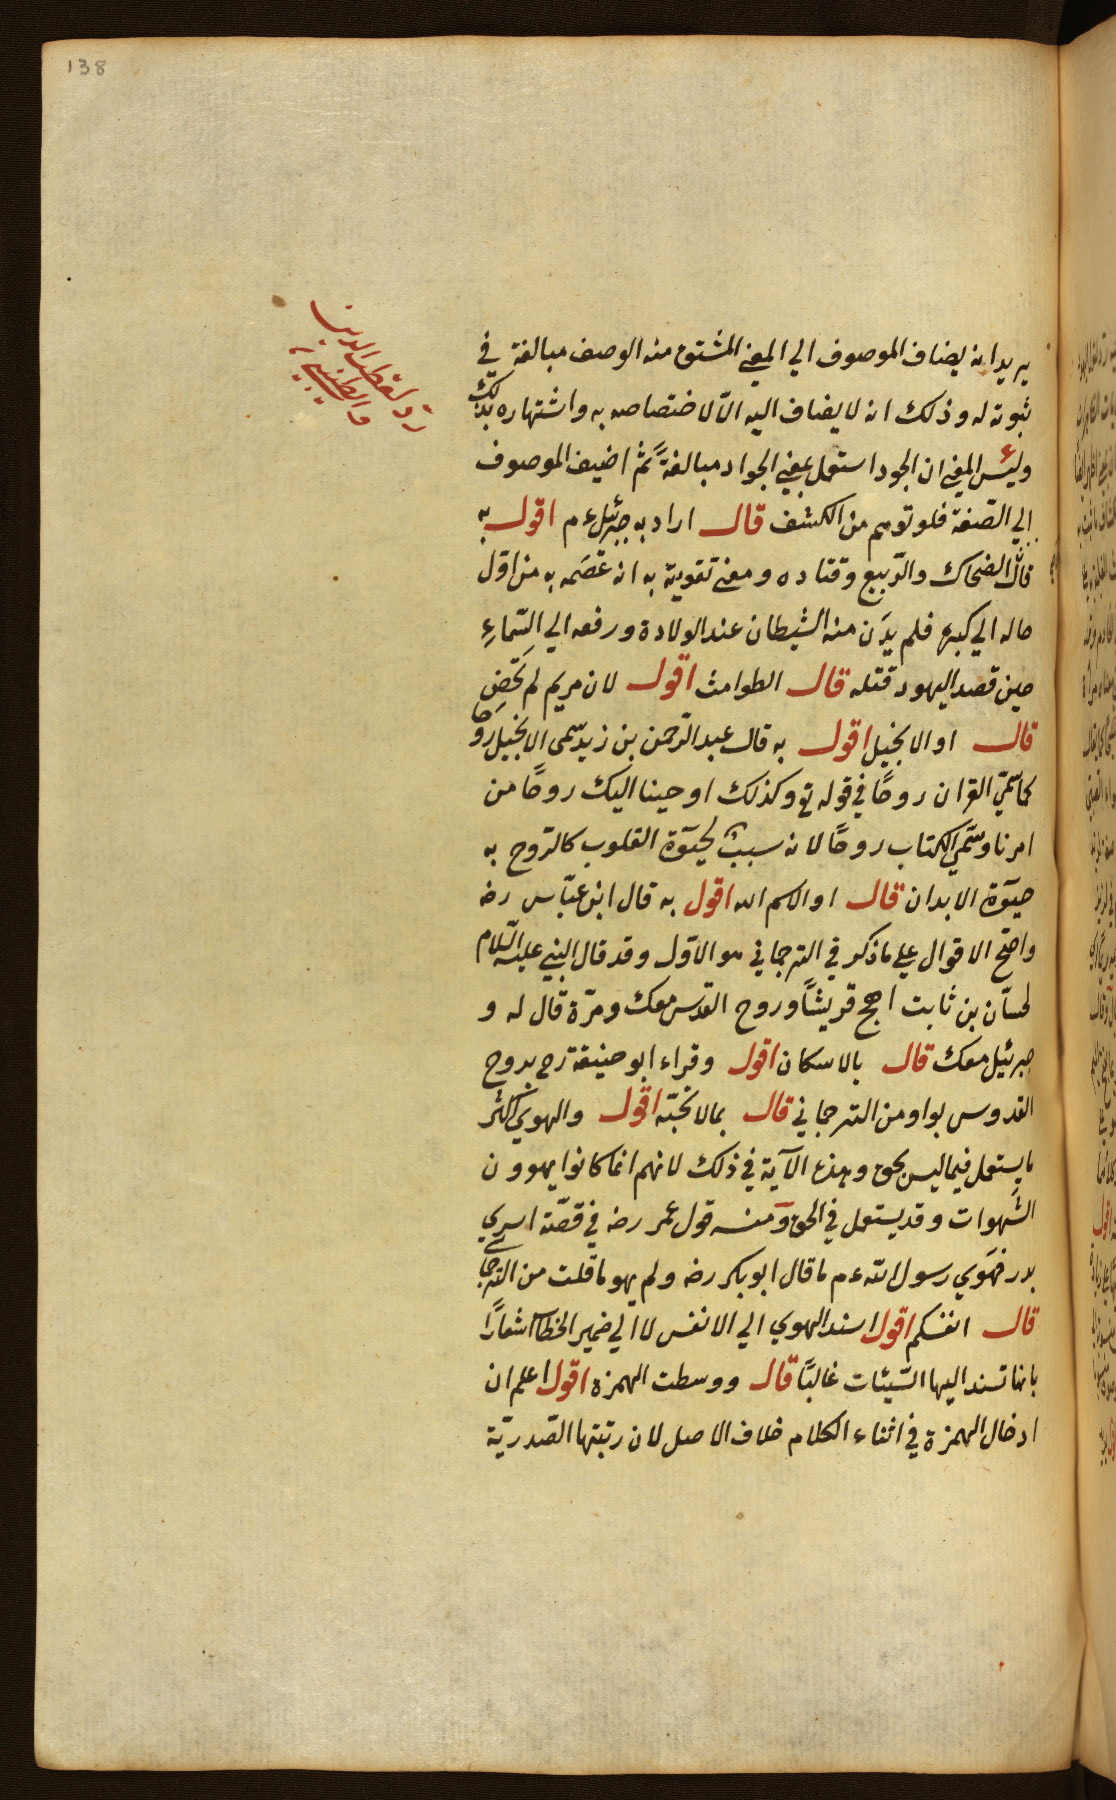 138
ردّ لقطب الدين
والطيبي
يريد انه يضاف الموصوف الي المعني المشتق منه الوصف مبالغة في
ثبوته له وذلك انه لا يضاف اليه الّا لاختصاصه به واشتهاره بذلك
وليس المعني ان الجود استعمل بمعني الجواد مبالغةً ثم اضيف الموصوف
الي الصّفة فلو توهم من الكشف قال اراد به جبرئيل ءم اقول به
قال الضحاك والرّبيع وقتاده ومعني تقويته به انه عصَمه به من اوّل
حاله الي كبره فلم يدَن منه الشيطان عند الولادة ورفعه الي السّماءِ
حين قصد اليهود قتله قال الطوامث اقول لان مريم لم تحَضِ
قال او الانجيل اقول به قال عبد الرّحمن بن زيد سّمى الانجيل روحًا
كما سّميّ القران روحًا في قوله تع وكذلك اوحينا اليك روحًا من
امرنا وسّميّ الكتاب روحًا لانه سببٌ لحيَوة القلوب كالرّوح به
حيَوة الابدان قال او اسم الله اقول به قال ابن عبّاس رضه
واصَحّ الاقوال علي ما ذكر في الترجماني هو الاوّل وقد قال النبي عليه السّلام
لحسّان بن ثابت اهجُ قريشًا وروح القدس معك ومرّة قال له و
جبرئيل معك قال بالاسكان اقول وقراء ابو حنيفة رح بروح
القدوس بواو من الترجماني قال بما لا تحبّه اقول والهوي اكثر
ما يستعمل فيما ليس بحق وهذه الآية في ذلك لانهم انما كانوا يهوون
الشهوات وقد يستعمل في الحق ومنه قول عمر رضه في قصّة اسري
بدر فهَوي رسول الله ءم ما قال ابو بكر رضه ولم يهو ما قلت من الترجماني
قال انفسكم اقول اسند الهوي الي الانفس لا الي ضمير الخطاب اشعارًا
بانها تسند اليها السّيئات غالبًا قال ووسطت الهمزة اقول اعلم ان
ادخال الهمزة في اثناء الكلام خلاف الاصل لان رتبتها الصّدريّة